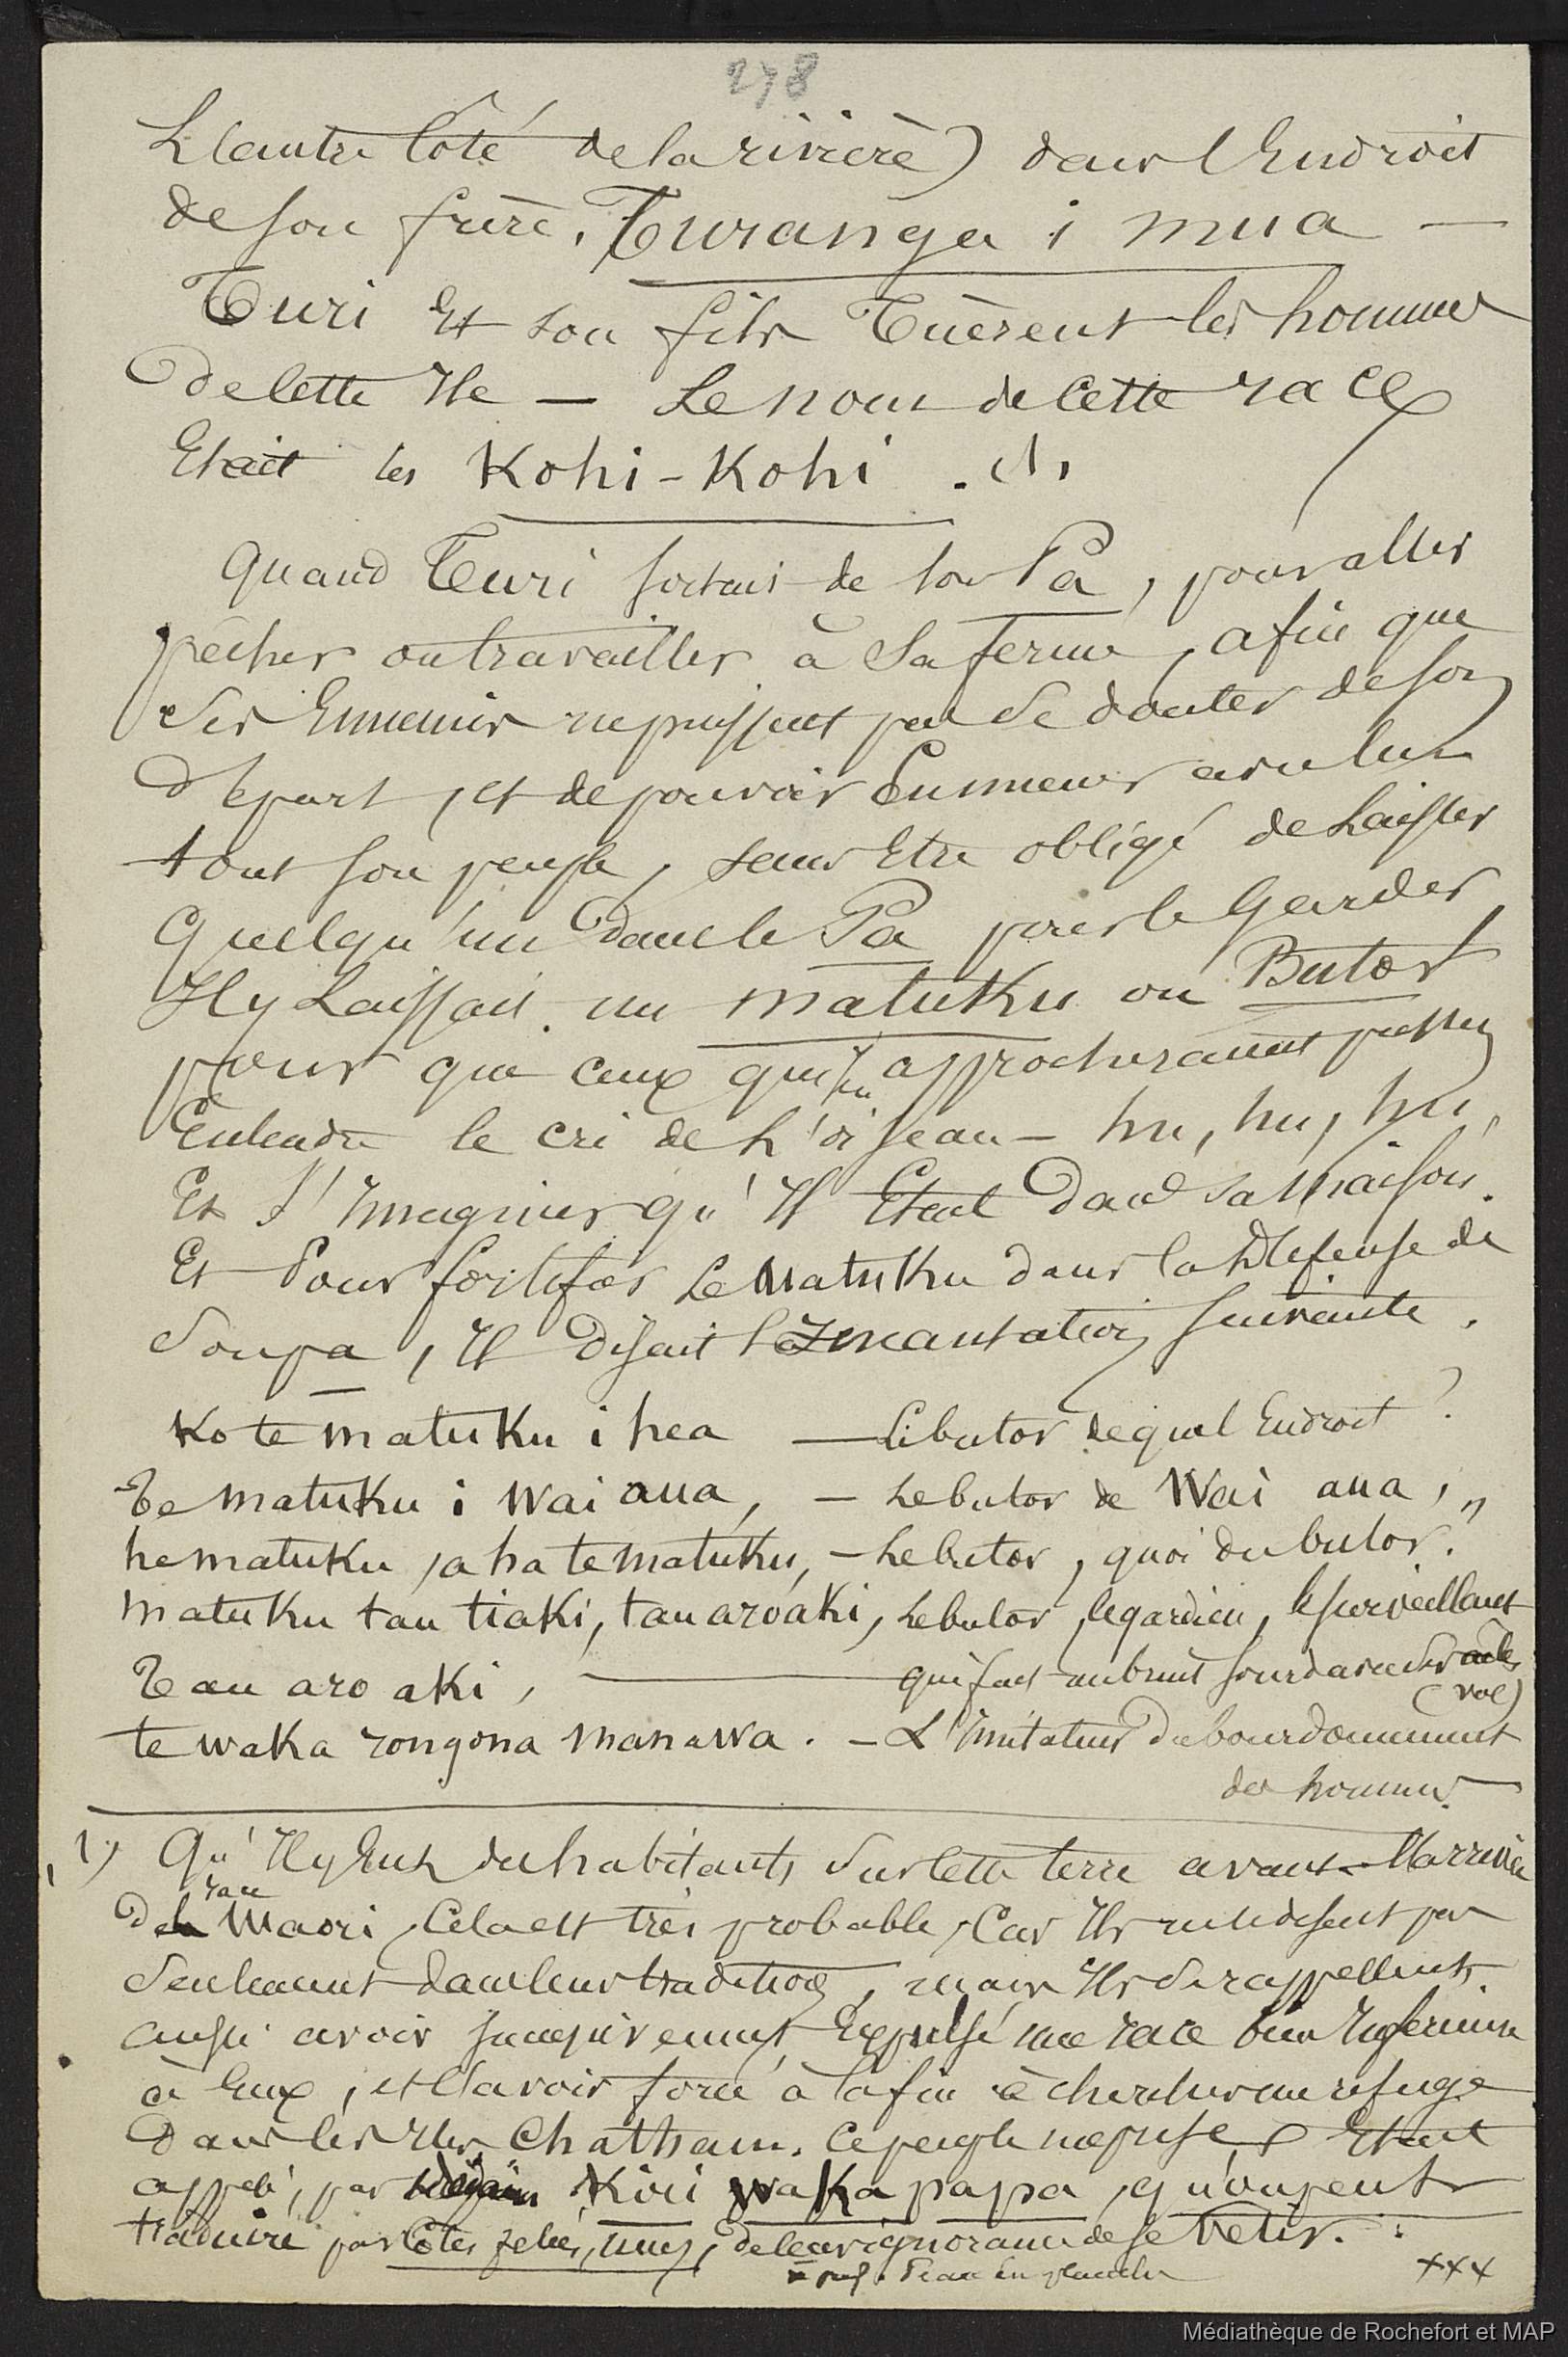 278
L'autre Côté de la rivière) dans l'Endroit
de son frère, Turanga i mua —
Turi Et son fils Tuèrent les hommes
de Cette Ile — Le nom de Cette race
Etait les Kohi-Kohi . (1)
Quand Turi sortait de son Pa, pour aller
pêcher ou travailler à Sa ferme, afin que
Ses Ennemis ne puissent pas Se douter de son
départ, et de pouvoir Emmener avec lui
tout son peuple, sans Etre obligé de Laisser
Quelqu'un Dans le Pa pour le Garder
Il y Laissait un matuku ou Butor
pour que ceux qui s'en approcheraient puissent
Entendre le cri de L'oiseau — hu, hu, hu,
Et S'Imaginer qu'Il Etait Dans sa Maison.
Et Pour fortifier Le Matuku dans la Défense de
Son pa, Il Disait l'Incantation Suivante.
Ko te matuku i hea — Le butor de quel Endroit ?
Te matuku i Wai aua, — Le butor de Wai aua, "
he matuku, aha te matuku, — Le butor, quoi du butor.
matuku tau tiaki, tau aroaki, Le butor, le gardien, le surveillant
Tau aro aki, — qui fait un bruit sourd avec Ses ailes
(vol)
te waka rongona manawa. — L'Imitateur Du bourdonnement
des hommes.
(1) Qu'Il y Eut des habitants Sur Cette terre avant L'arrivée
race
de la Maori, Cela est très probable, Car Ils ne le disent pas
Seulement dans leur tradition, mais Ils Se rappellent
aussi avoir Expulsé une race bien Inférieure
à Eux, et L'avoir forcé à la fin à chercher un refuge
Dans les Iles Chatham. Ce peuple méprisé Etait
appelé, par Kiri waka papa, qu'on peut
traduire par Côtes pelées, nues, de leur ignorance de se Vêtir.
Peau en planche
xxx
Médiathèque de Rochefort et MAP